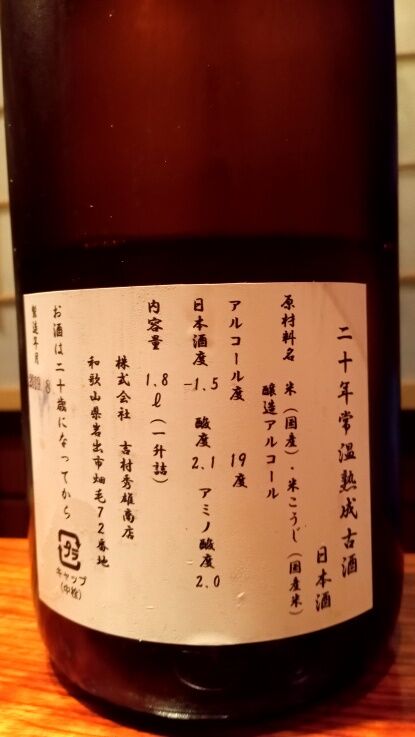 二十年常温熟成古酒
日本酒
原材料名 米(国産)・米こうじ(国産米)
醸造アルコール
アルコール度 19度
日本酒度 -1.5 酸度 2.1 アミノ酸度 2.0
内容量 1.8ℓ(一升詰)
株式会社 吉村秀雄商店
和歌山県岩出市畑毛72番地
お酒は二十歳になってから
製造年月
2009.8
プラ
キャップ
(中栓)